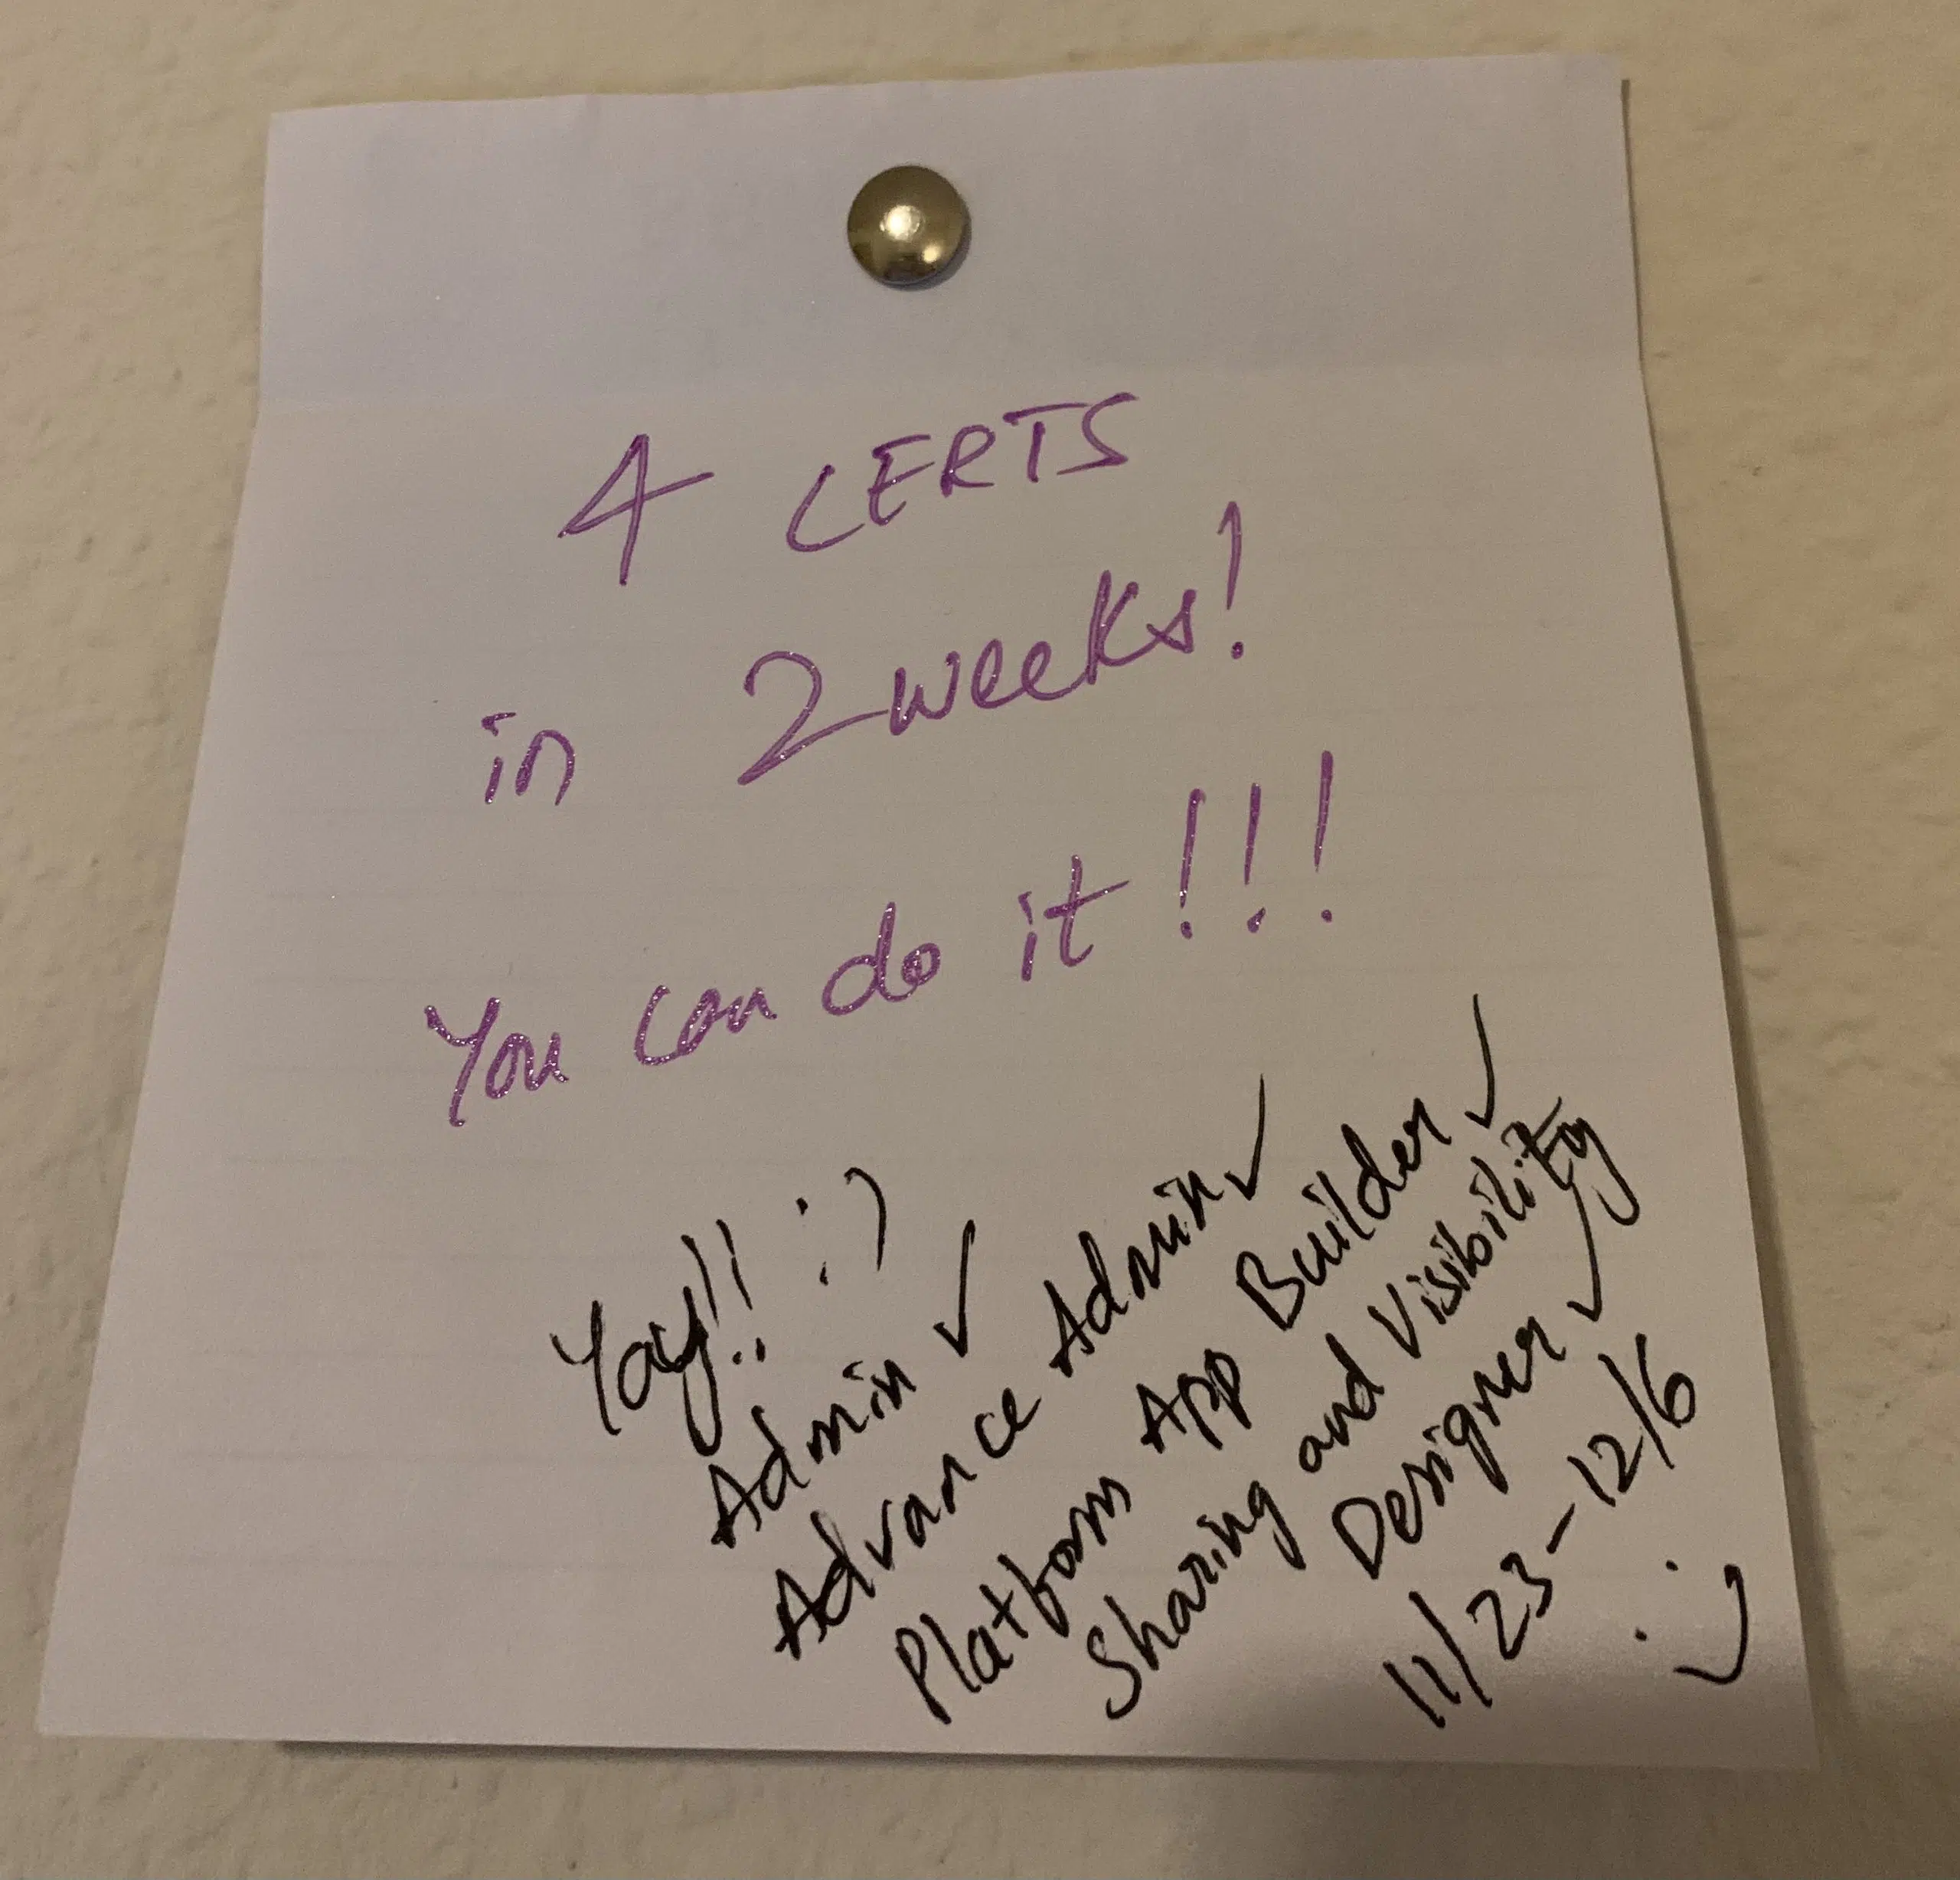 4 CERTS
in 2 weeks!
You can do it!!!
Yay!! :)
Admin ✓
Advance Admin ✓
Platform App Builder ✓
Sharing and Visibility
Designer ✓
11/23-12/6
:)